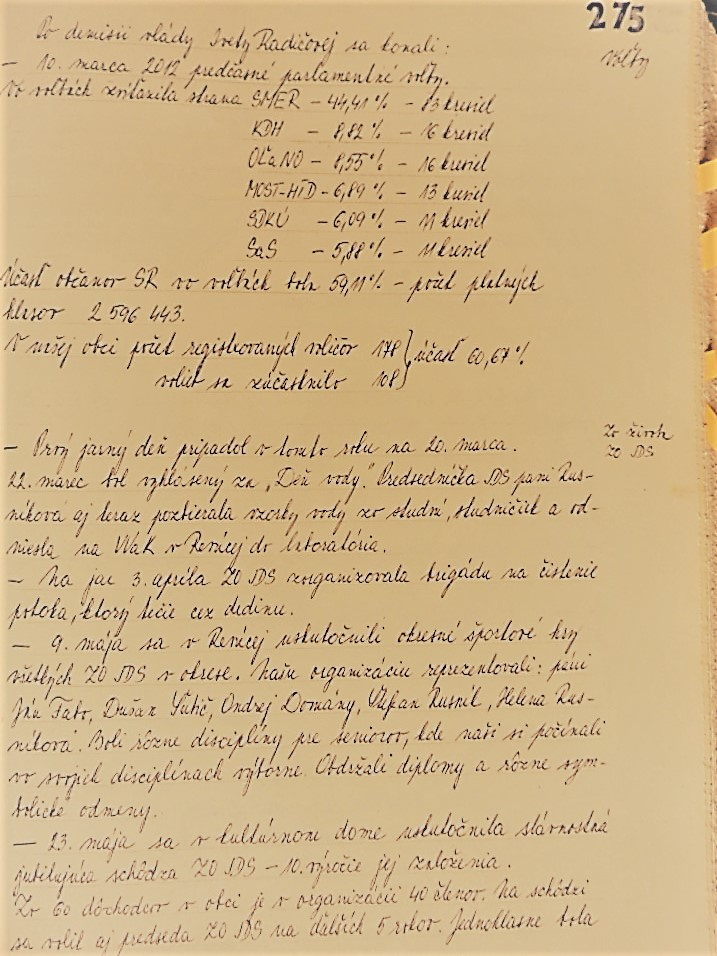 275
Po demisii vlády Ivety Radičovej sa konali:
Voľby
– 10. marca 2012 predčasné parlamentné voľby.
Vo voľbách zvíťazila strana SMER – 44,41 % – 83 kresiel
KDH – 8,82 % – 16 kresiel
OĽaNO – 8,55 % – 16 kresiel
MOST-HÍD – 6,89 % – 13 kresiel
SDKÚ – 6,09 % – 11 kresiel
SaS – 5,88 % – 11 kresiel
Účasť občanov SR vo voľbách bola 59,11 % – počet platných
hlasov 2 596 443.
V našej obci počet registrovaných voličov 178 } účasť 60,67 %
volieb sa zúčastnilo 108
– Prvý jarný deň pripadol v tomto roku na 20. marca.
Zo života
ZO JDS
22. marec bol vyhlásený za „Deň vody". Predsedníčka JDS pani Rus-
níková aj teraz pozbierala vzorky vody zo studní, studničiek a od-
niesla na VaK v Revúcej do laboratória.
– Na jar 3. apríla ZO JDS zorganizovala brigádu na čistenie
potoka, ktorý tečie cez dedinu.
– 9. mája sa v Revúcej uskutočnili okresné športové hry
všetkých ZO JDS v okrese. Našu organizáciu reprezentovali: páni
Ján Fabo, Dušan Ďutič, Ondrej Domány, Štefan Rusník, Helena Rus-
níková. Boli rôzne disciplíny pre seniorov, kde naši si počínali
vo svojich disciplínach výborne. Obdržali diplomy a rôzne sym-
bolické odmeny.
– 23. mája sa v kultúrnom dome uskutočnila slávnostná
jubilujúca schôdza ZO JDS – 10. výročie jej založenia.
Zo 60 dôchodcov v obci je v organizácii 40 členov. Na schôdzi
sa volil aj predseda ZO JDS na ďalších 5 rokov. Jednohlasne bola